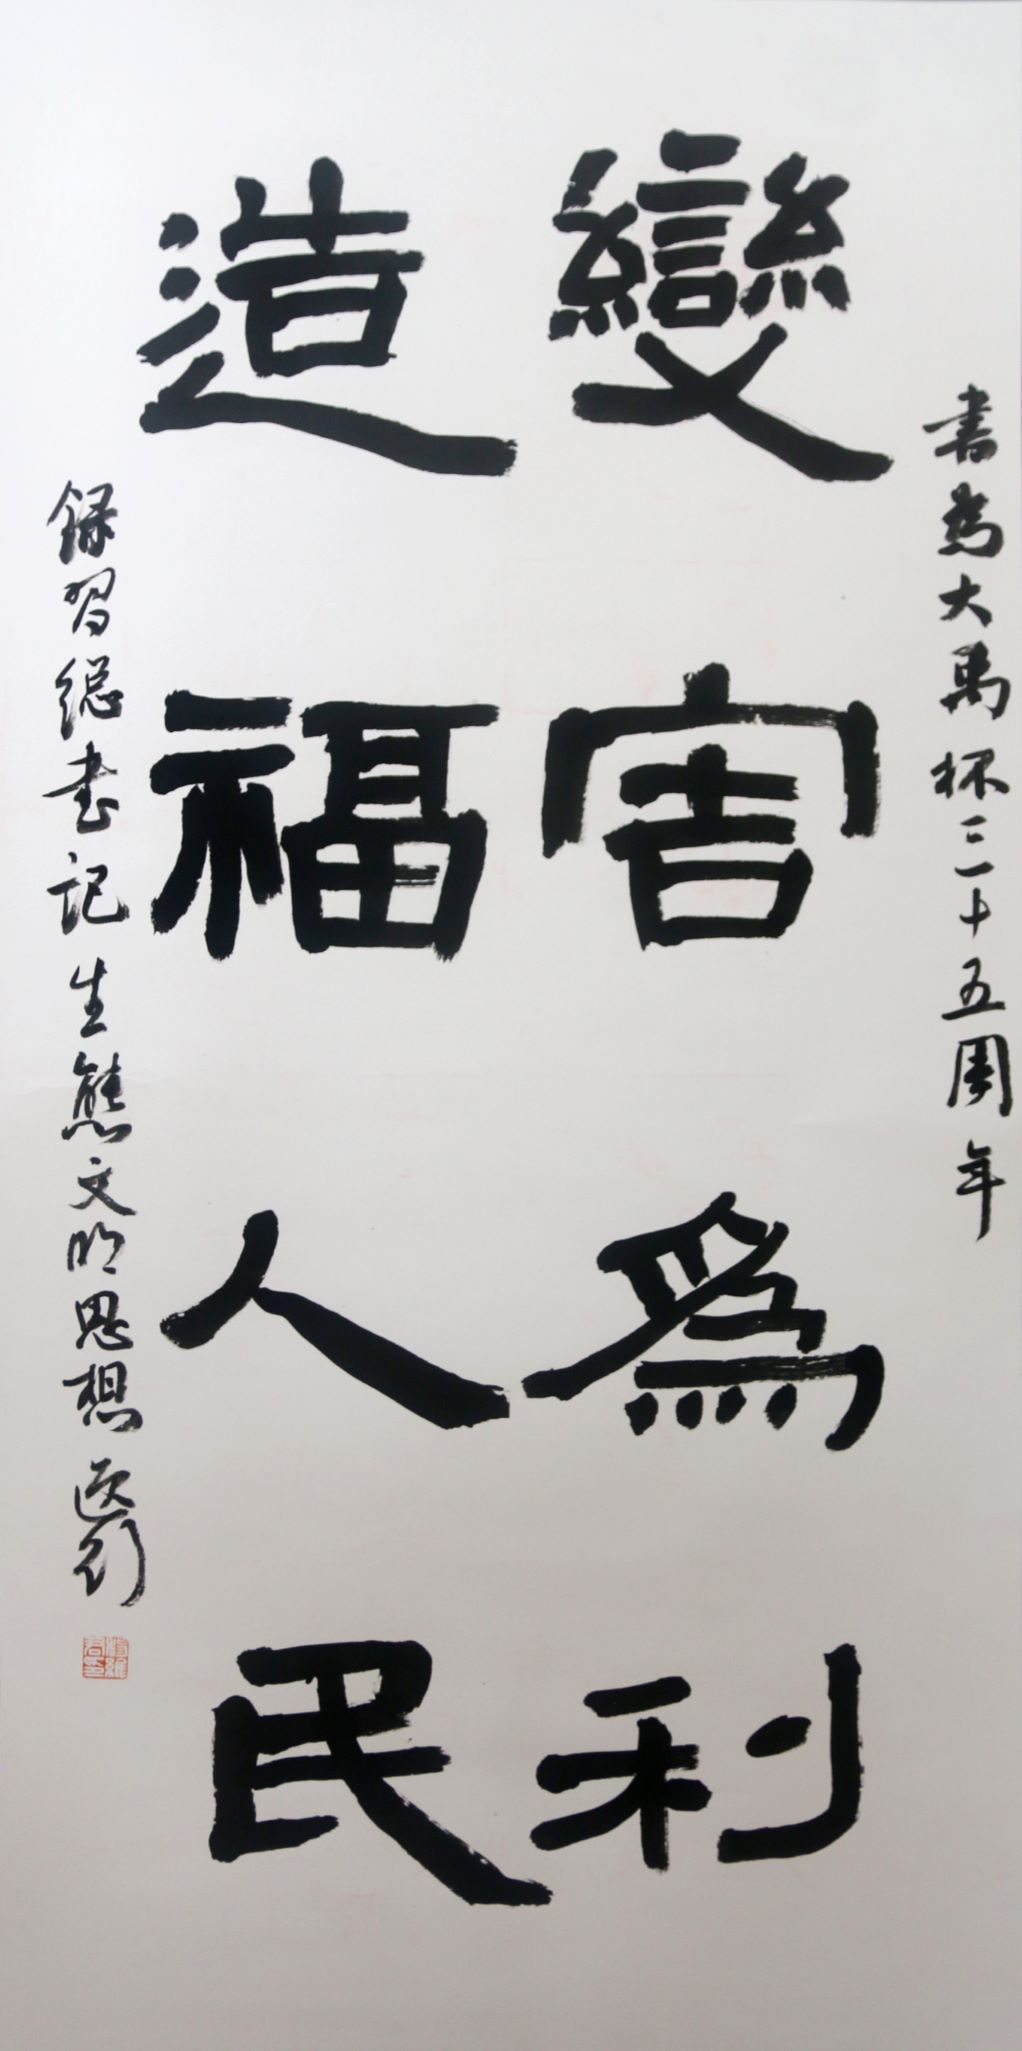 書為大禹杯二十五周年
變害為利
造福人民
録習總書记生態文明思想